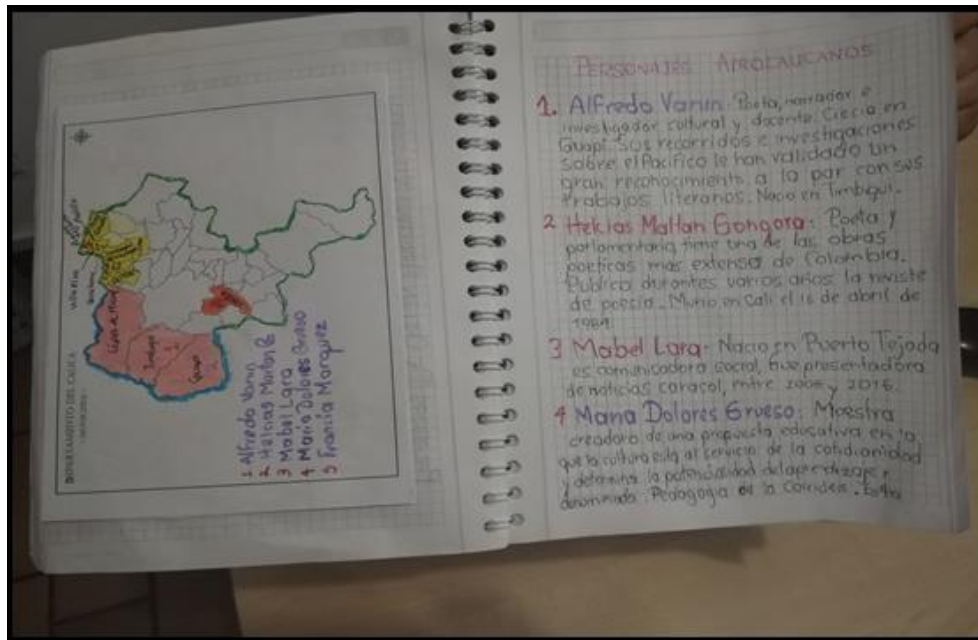 DEPARTAMENTO DEL CAUCA
López de M
Timbiquí
Guapi
Villa Rica
1 Alfredo Vanin
2 Helcias Martan G
3 Mabel Lara
4 María Dolores Grueso
5 Francia Marquez
PERSONAJES AFROCAUCANOS
1. Alfredo Vanin. Poeta, narrador e
investigador cultural y docente. Crecio en
Guapi. Sus recorridos e investigaciones
sobre el Pacifico le han validado un
gran reconocimiento a la par con sus
trabajos literarios. Nacio en Timbiqui.
2 Helcias Mattan Gongora: Poeta y
parlamentaria tiene una de las obras
poeticas mas extensa de Colombia.
Publico durantes varios años la reviste
de poesia. Murio en Cali el 16 de abril de
1984.
3 Mabel Lara- Nacio en Puerto Tejada
es comunicadora social, fue presentadora
de noticias caracol, entre 2006 y 2016.
4 Maria Dolores Grueso: Maestra
creadora de una propuesta educativa en la
que la cultura esta al servicio de la cotidianidad
y determina la potencialidad del aprendizaje
denominada: Pedagogia de la